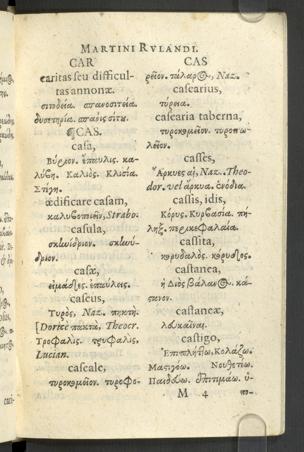 MARTINI RVLANDI.
CAR
caritas seu difficul-
tas annonæ.
σιτοδεία. σπανοσιτεία.
δυσετηρία. σπάνις σίτου.
¶CAS.
casa,
ἔπαυλις. κα-
λύβη. Καλιός. Κλισία.
Στέγη.
ædificare casam,
καλυβοποιεῖν, Strabo.
casula,
σκηνίδριον. σκηνύ-
δριον.
casæ,
ἐπαύλεις.
caseus,
Τυρός, Naz. πηκτή.
[Doricè πακτά, Theocr.
Τροφαλίς. τρυφαλίς,
Lucian.
caseale,
τυροκομεῖον. τυροφο-
CAS
ρεῖον. τάλαρος, Naz.
casearius,
τυρεια.
casearia taberna,
τυροκομεῖον. τυροπω-
λεῖον.
casses,
Ἄρκυες αἱ, Naz. Theo-
dor. vel ἄρκυα. ἐνόδια.
cassis, idis,
Κόρυς. Κυρβασία. πή-
ληξ. περικεφαλαία.
cassita,
κορυδαλός. κόρυδος.
castanea,
ἡ Διὸς βάλανος. κά-
στανον.
castaneæ,
castigo,
Ἐπιπλήττω, Κολάζω.
Μαστιγόω. Νουθετέω.
Παιδεύω. ἐπιτιμάω. ὑ-
M 4